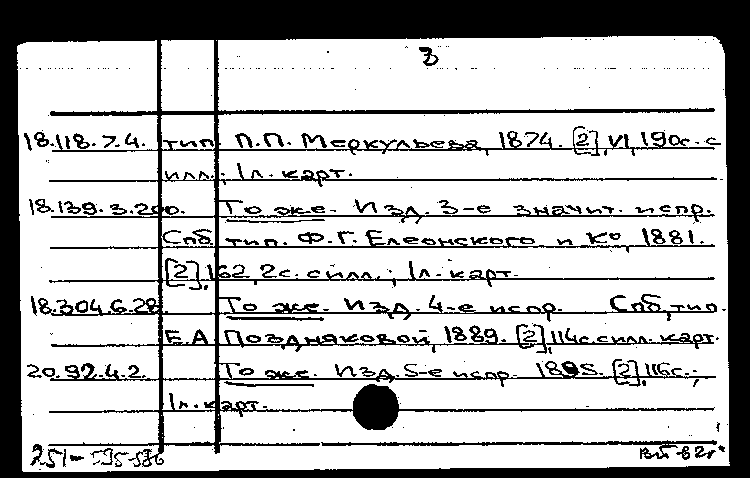 3
18.118.7.4. тип. П.П. Меркульева, 1874. [2], VI, 190с. с
илл.; 1л. карт.
18.139.3.200. То же. Изд. 3-е значит. испр.
Спб, тип. Ф.Г. Елеонского и К°, 1881.
[2], 162, 2с. с илл.; 1л. карт.
18.304.6.28. То же. Изд. 4-е испр. Спб, тип.
Е.А. Поздняковой, 1889. [2], 114с. с илл. карт.
20.92.4.2. То же. Изд. 5-е испр. 1895. [2], 116с.;
1л. карт.
251-595-596